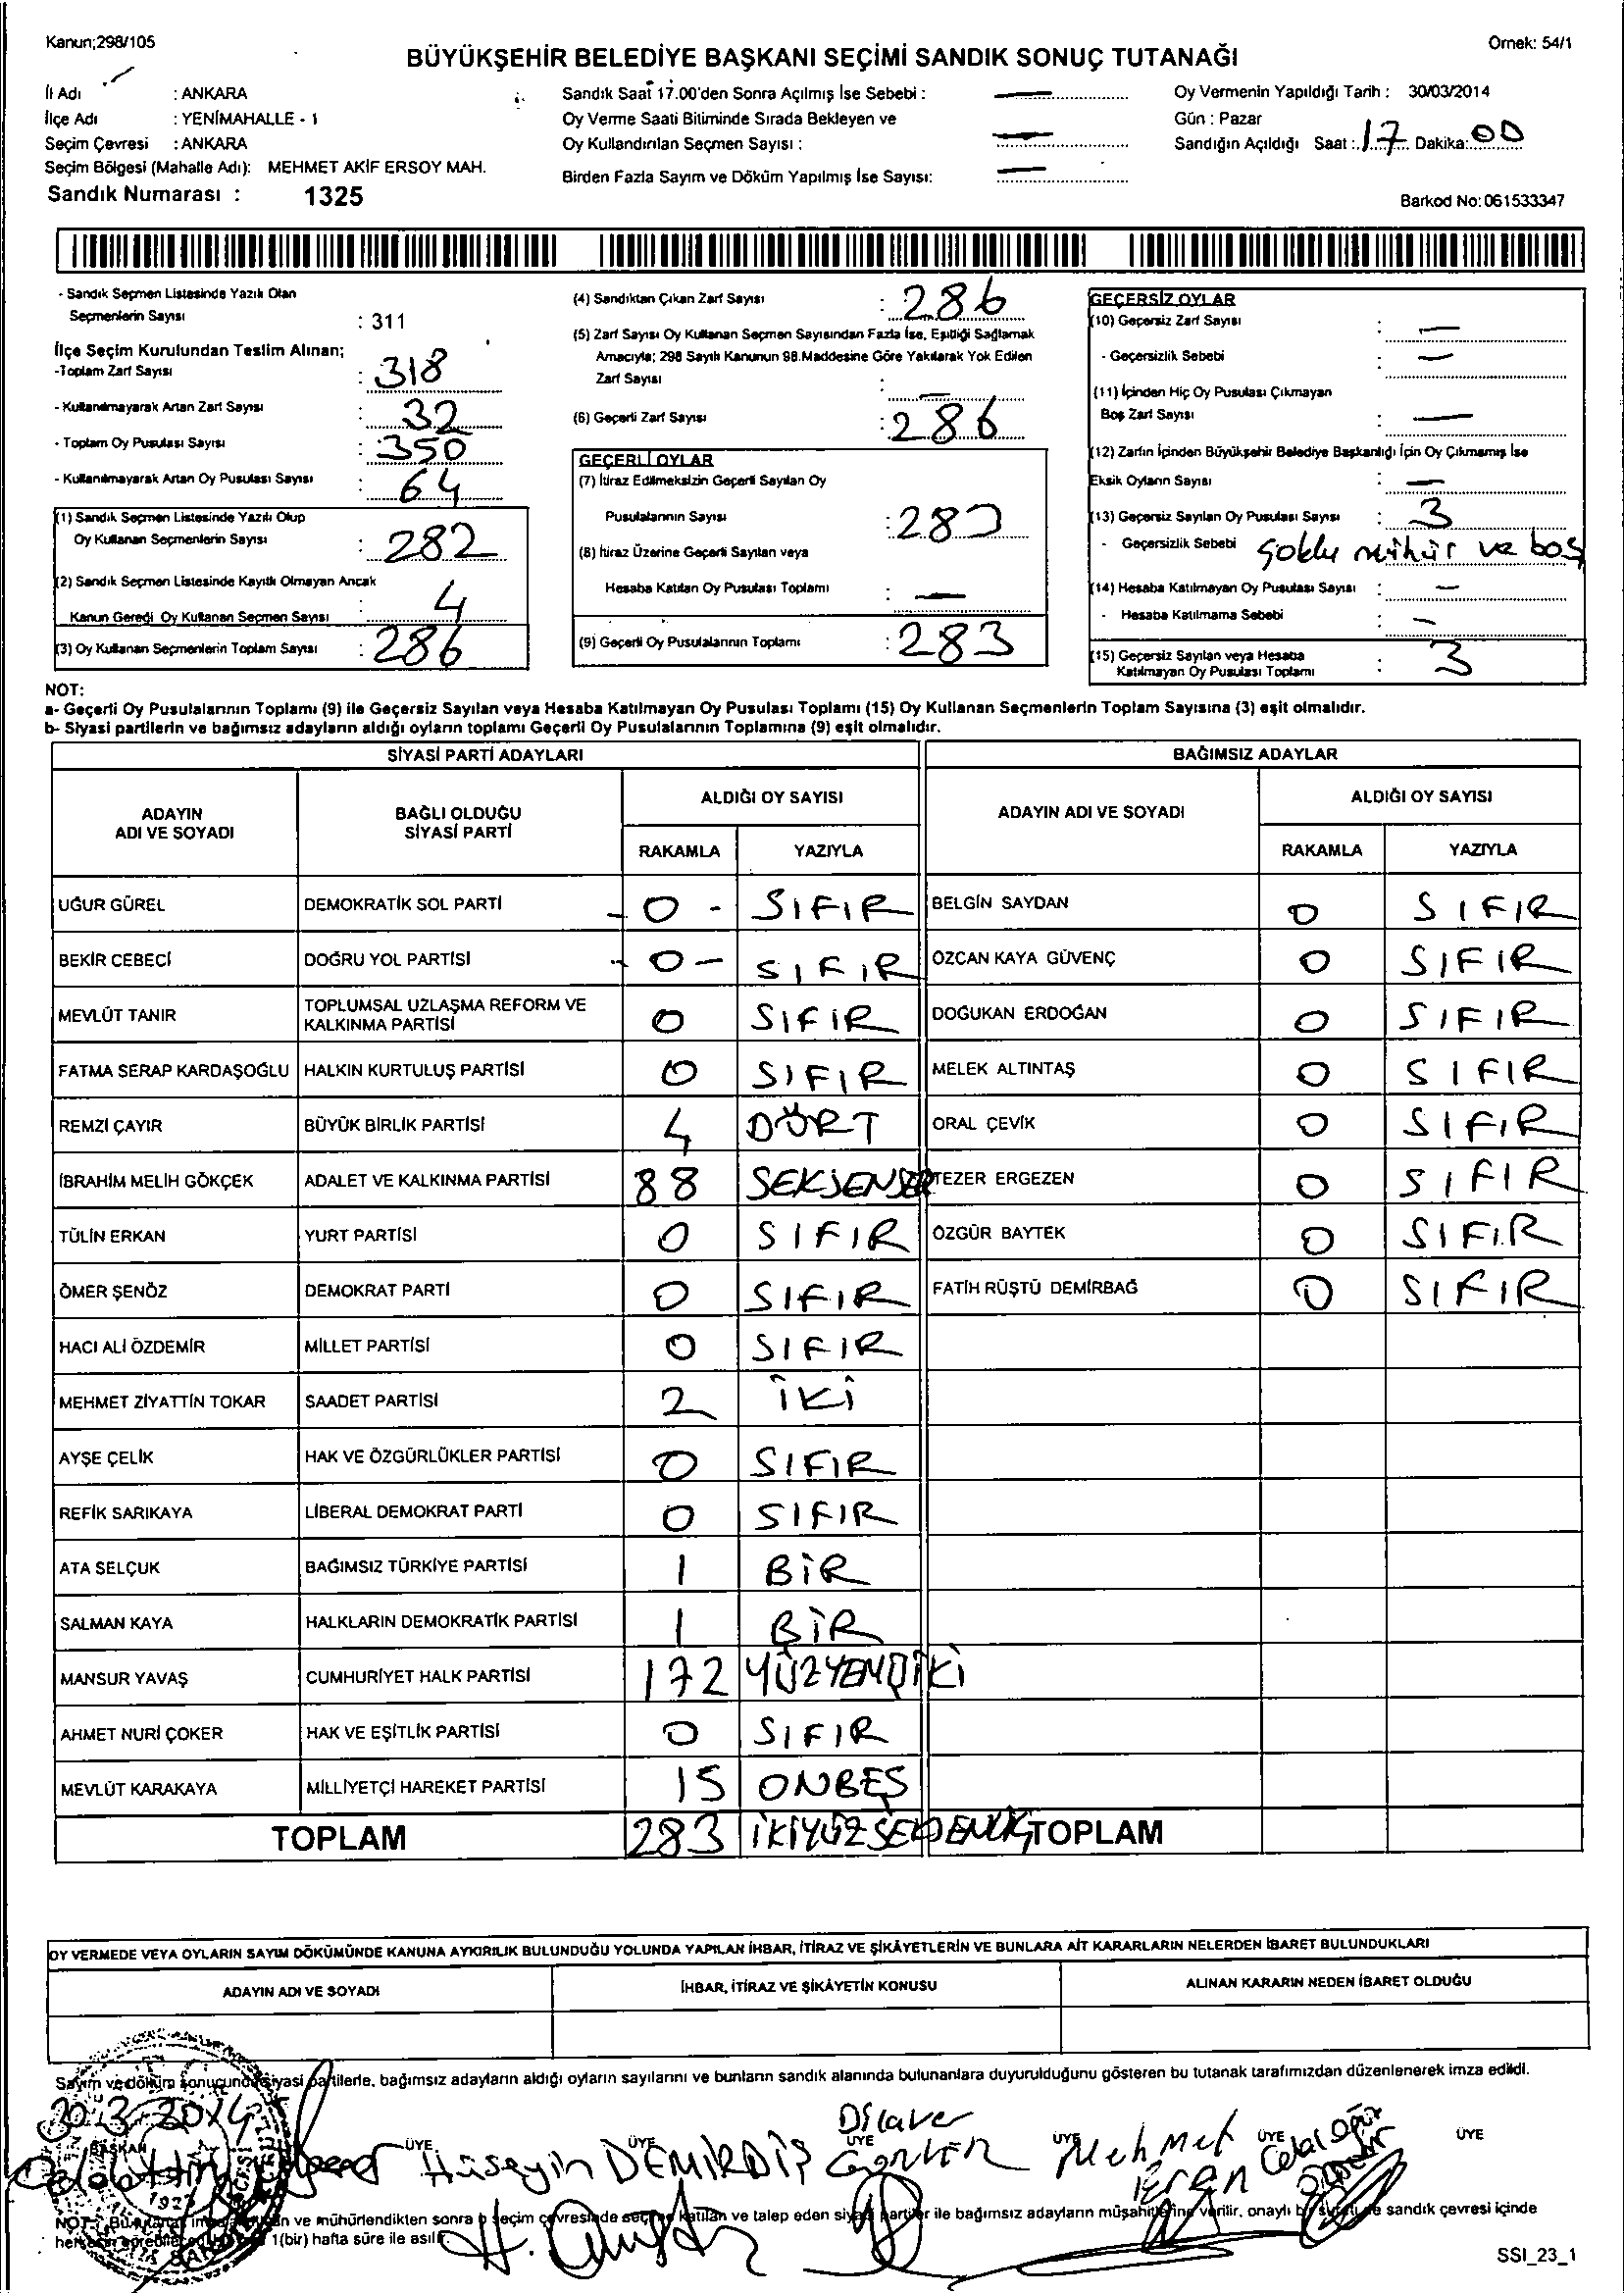 Kanun;298/105
Örnek: 54/1
BÜYÜKŞEHİR BELEDİYE BAŞKANI SEÇİMİ SANDIK SONUÇ TUTANAĞI
İl Adı : ANKARA
İlçe Adı : YENİMAHALLE - 1
Seçim Çevresi : ANKARA
Seçim Bölgesi (Mahalle Adı): MEHMET AKİF ERSOY MAH.
Sandık Numarası : 1325
Sandık Saat 17.00'den Sonra Açılmış İse Sebebi :
Oy Verme Saati Bitiminde Sırada Bekleyen ve
Oy Kullandırılan Seçmen Sayısı :
Birden Fazla Sayım ve Döküm Yapılmış İse Sayısı:
Oy Vermenin Yapıldığı Tarih : 30/03/2014
Gün : Pazar
Sandığın Açıldığı Saat : 17 Dakika: 00
Barkod No: 061533347
- Sandık Seçmen Listesinde Yazılı Olan
Seçmenlerin Sayısı : 311
İlçe Seçim Kurulundan Teslim Alınan;
-Toplam Zarf Sayısı : 318
- Kullanılmayarak Artan Zarf Sayısı : 32
- Toplam Oy Pusulası Sayısı : 350
- Kullanılmayarak Artan Oy Pusulası Sayısı : 64
(1) Sandık Seçmen Listesinde Yazılı Olup
Oy Kullanan Seçmenlerin Sayısı : 282
(2) Sandık Seçmen Listesinde Kayıtlı Olmayan Ancak
Kanun Gereği Oy Kullanan Seçmen Sayısı : 4
(3) Oy Kullanan Seçmenlerin Toplam Sayısı : 286
(4) Sandıktan Çıkan Zarf Sayısı : 286
(5) Zarf Sayısı Oy Kullanan Seçmen Sayısından Fazla İse, Eşitliği Sağlamak
Amacıyla; 298 Sayılı Kanunun 98.Maddesine Göre Yakılarak Yok Edilen
Zarf Sayısı : —
(6) Geçerli Zarf Sayısı : 286
GEÇERLİ OYLAR
(7) İtiraz Edilmeksizin Geçerli Sayılan Oy
Pusulalarının Sayısı : 283
(8) İtiraz Üzerine Geçerli Sayılan veya
Hesaba Katılan Oy Pusulası Toplamı : —
(9) Geçerli Oy Pusulalarının Toplamı : 283
GEÇERSİZ OYLAR
(10) Geçersiz Zarf Sayısı : —
- Geçersizlik Sebebi : —
(11) İçinden Hiç Oy Pusulası Çıkmayan
Boş Zarf Sayısı : —
(12) Zarfın İçinden Büyükşehir Belediye Başkanlığı İçin Oy Çıkmamış İse
Eksik Oyların Sayısı : —
(13) Geçersiz Sayılan Oy Pusulası Sayısı : 3
- Geçersizlik Sebebi mühür ve boş
(14) Hesaba Katılmayan Oy Pusulası Sayısı : —
- Hesaba Katılmama Sebebi : —
(15) Geçersiz Sayılan veya Hesaba
Katılmayan Oy Pusulası Toplamı : 3
NOT:
a- Geçerli Oy Pusulalarının Toplamı (9) ile Geçersiz Sayılan veya Hesaba Katılmayan Oy Pusulası Toplamı (15) Oy Kullanan Seçmenlerin Toplam Sayısına (3) eşit olmalıdır.
b- Siyasi partilerin ve bağımsız adayların aldığı oyların toplamı Geçerli Oy Pusulalarının Toplamına (9) eşit olmalıdır.
SİYASİ PARTİ ADAYLARI
BAĞIMSIZ ADAYLAR
ADAYIN
ADI VE SOYADI
BAĞLI OLDUĞU
SİYASİ PARTİ
ALDIĞI OY SAYISI
RAKAMLA YAZIYLA
ADAYIN ADI VE SOYADI
ALDIĞI OY SAYISI
RAKAMLA YAZIYLA
UĞUR GÜREL DEMOKRATİK SOL PARTİ - 0 - SIFIR BELGİN SAYDAN 0 SIFIR
BEKİR CEBECİ DOĞRU YOL PARTİSİ - 0 - SIFIR ÖZCAN KAYA GÜVENÇ 0 SIFIR
MEVLÜT TANIR TOPLUMSAL UZLAŞMA REFORM VE KALKINMA PARTİSİ 0 SIFIR DOĞUKAN ERDOĞAN 0 SIFIR
FATMA SERAP KARDAŞOĞLU HALKIN KURTULUŞ PARTİSİ 0 SIFIR MELEK ALTINTAŞ 0 SIFIR
REMZİ ÇAYIR BÜYÜK BİRLİK PARTİSİ 4 DÖRT ORAL ÇEVİK 0 SIFIR
İBRAHİM MELİH GÖKÇEK ADALET VE KALKINMA PARTİSİ 88 TEZER ERGEZEN 0 SIFIR
TÜLİN ERKAN YURT PARTİSİ 0 SIFIR ÖZGÜR BAYTEK 0 SIFIR
ÖMER ŞENÖZ DEMOKRAT PARTİ 0 SIFIR FATİH RÜŞTÜ DEMİRBAĞ 0 SIFIR
HACI ALİ ÖZDEMİR MİLLET PARTİSİ 0 SIFIR
MEHMET ZİYATTİN TOKAR SAADET PARTİSİ 2 İKİ
AYŞE ÇELİK HAK VE ÖZGÜRLÜKLER PARTİSİ 0 SIFIR
REFİK SARIKAYA LİBERAL DEMOKRAT PARTİ 0 SIFIR
ATA SELÇUK BAĞIMSIZ TÜRKİYE PARTİSİ 1 BİR
SALMAN KAYA HALKLARIN DEMOKRATİK PARTİSİ 1 BİR
MANSUR YAVAŞ CUMHURİYET HALK PARTİSİ 172
AHMET NURİ ÇOKER HAK VE EŞİTLİK PARTİSİ 0 SIFIR
MEVLÜT KARAKAYA MİLLİYETÇİ HAREKET PARTİSİ 15 ONBEŞ
TOPLAM 283 TOPLAM
OY VERMEDE VEYA OYLARIN SAYIM DÖKÜMÜNDE KANUNA AYKIRILIK BULUNDUĞU YOLUNDA YAPILAN İHBAR, İTİRAZ VE ŞİKÂYETLERİN VE BUNLARA AİT KARARLARIN NELERDEN İBARET BULUNDUKLARI
ADAYIN ADI VE SOYADI İHBAR, İTİRAZ VE ŞİKÂYETİN KONUSU ALINAN KARARIN NEDEN İBARET OLDUĞU
Sayım ve döküm sonucunda siyasi partilerle, bağımsız adayların aldığı oyların sayılarını ve bunların sandık alanında bulunanlara duyurulduğunu gösteren bu tutanak tarafımızdan düzenlenerek imza edildi.
30.3.2014
BAŞKAN ÜYE ÜYE ÜYE ÜYE ÜYE ÜYE
Hüseyin DEMİRDİŞ Dilaver Mehmet Eren Celal
ve mühürlendikten sonra seçim çevresinde seçime katılan ve talep eden siyasi partiler ile bağımsız adayların müşahitlerine verilir, onaylı sandık çevresi içinde
1(bir) hafta süre ile asılır.
SSI_23_1